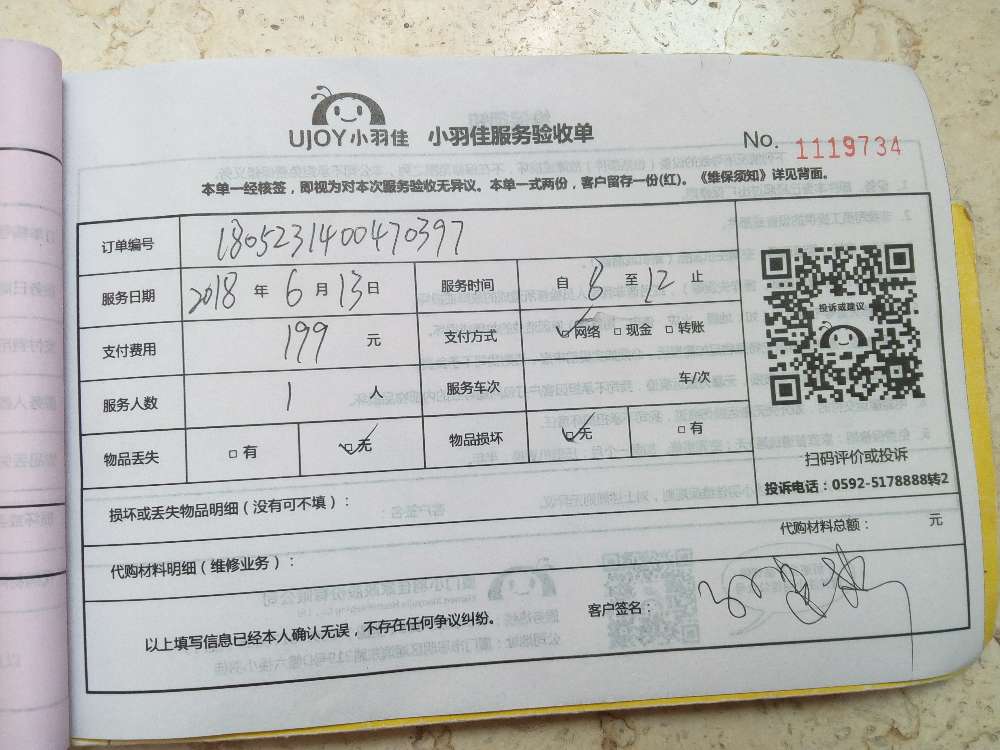 UJOY小羽佳 小羽佳服务验收单 No. 1119734
本单一经核签，即视为对本次服务验收无异议。本单一式两份，客户留存一份(红)。《维保须知》详见背面。
订单编号 1805231400470397
服务日期 2018 年 6 月 13 日 服务时间 自 8 至 12 止
支付费用 199 元 支付方式 ☑网络 □现金 □转账
服务人数 1 人 服务车次 车/次
物品丢失 □有 ☑无 物品损坏 ☑无 □有
投诉或建议
扫码评价或投诉
投诉电话：0592-5178888转2
损坏或丢失物品明细（没有可不填）：
代购材料明细（维修业务）： 代购材料总额： 元
以上填写信息已经本人确认无误，不存在任何争议纠纷。 客户签名：